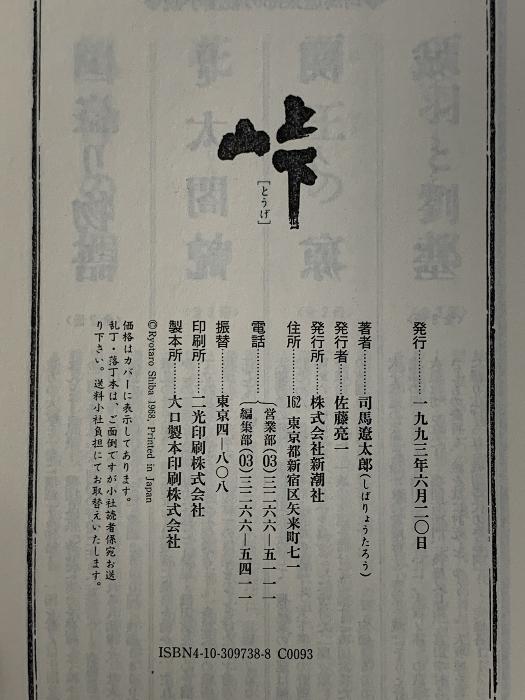 峠
[とうげ]
発行…………一九九三年六月二〇日
著者………司馬遼太郎(しばりょうたろう)
発行者……佐藤亮一
発行所……株式会社新潮社
住所………162 東京都新宿区矢来町七一
電話………(営業部(03)三二六六―五一一一
(編集部(03)三二六六―五四一一
振替………東京四―八〇八
印刷所……二光印刷株式会社
製本所……大口製本印刷株式会社
©Ryotaro Shiba 1968, Printed in Japan
価格はカバーに表示してあります。
乱丁・落丁本は、ご面倒ですが小社読者係宛お送
り下さい。送料小社負担にてお取替えいたします。
ISBN4-10-309738-8 C0093